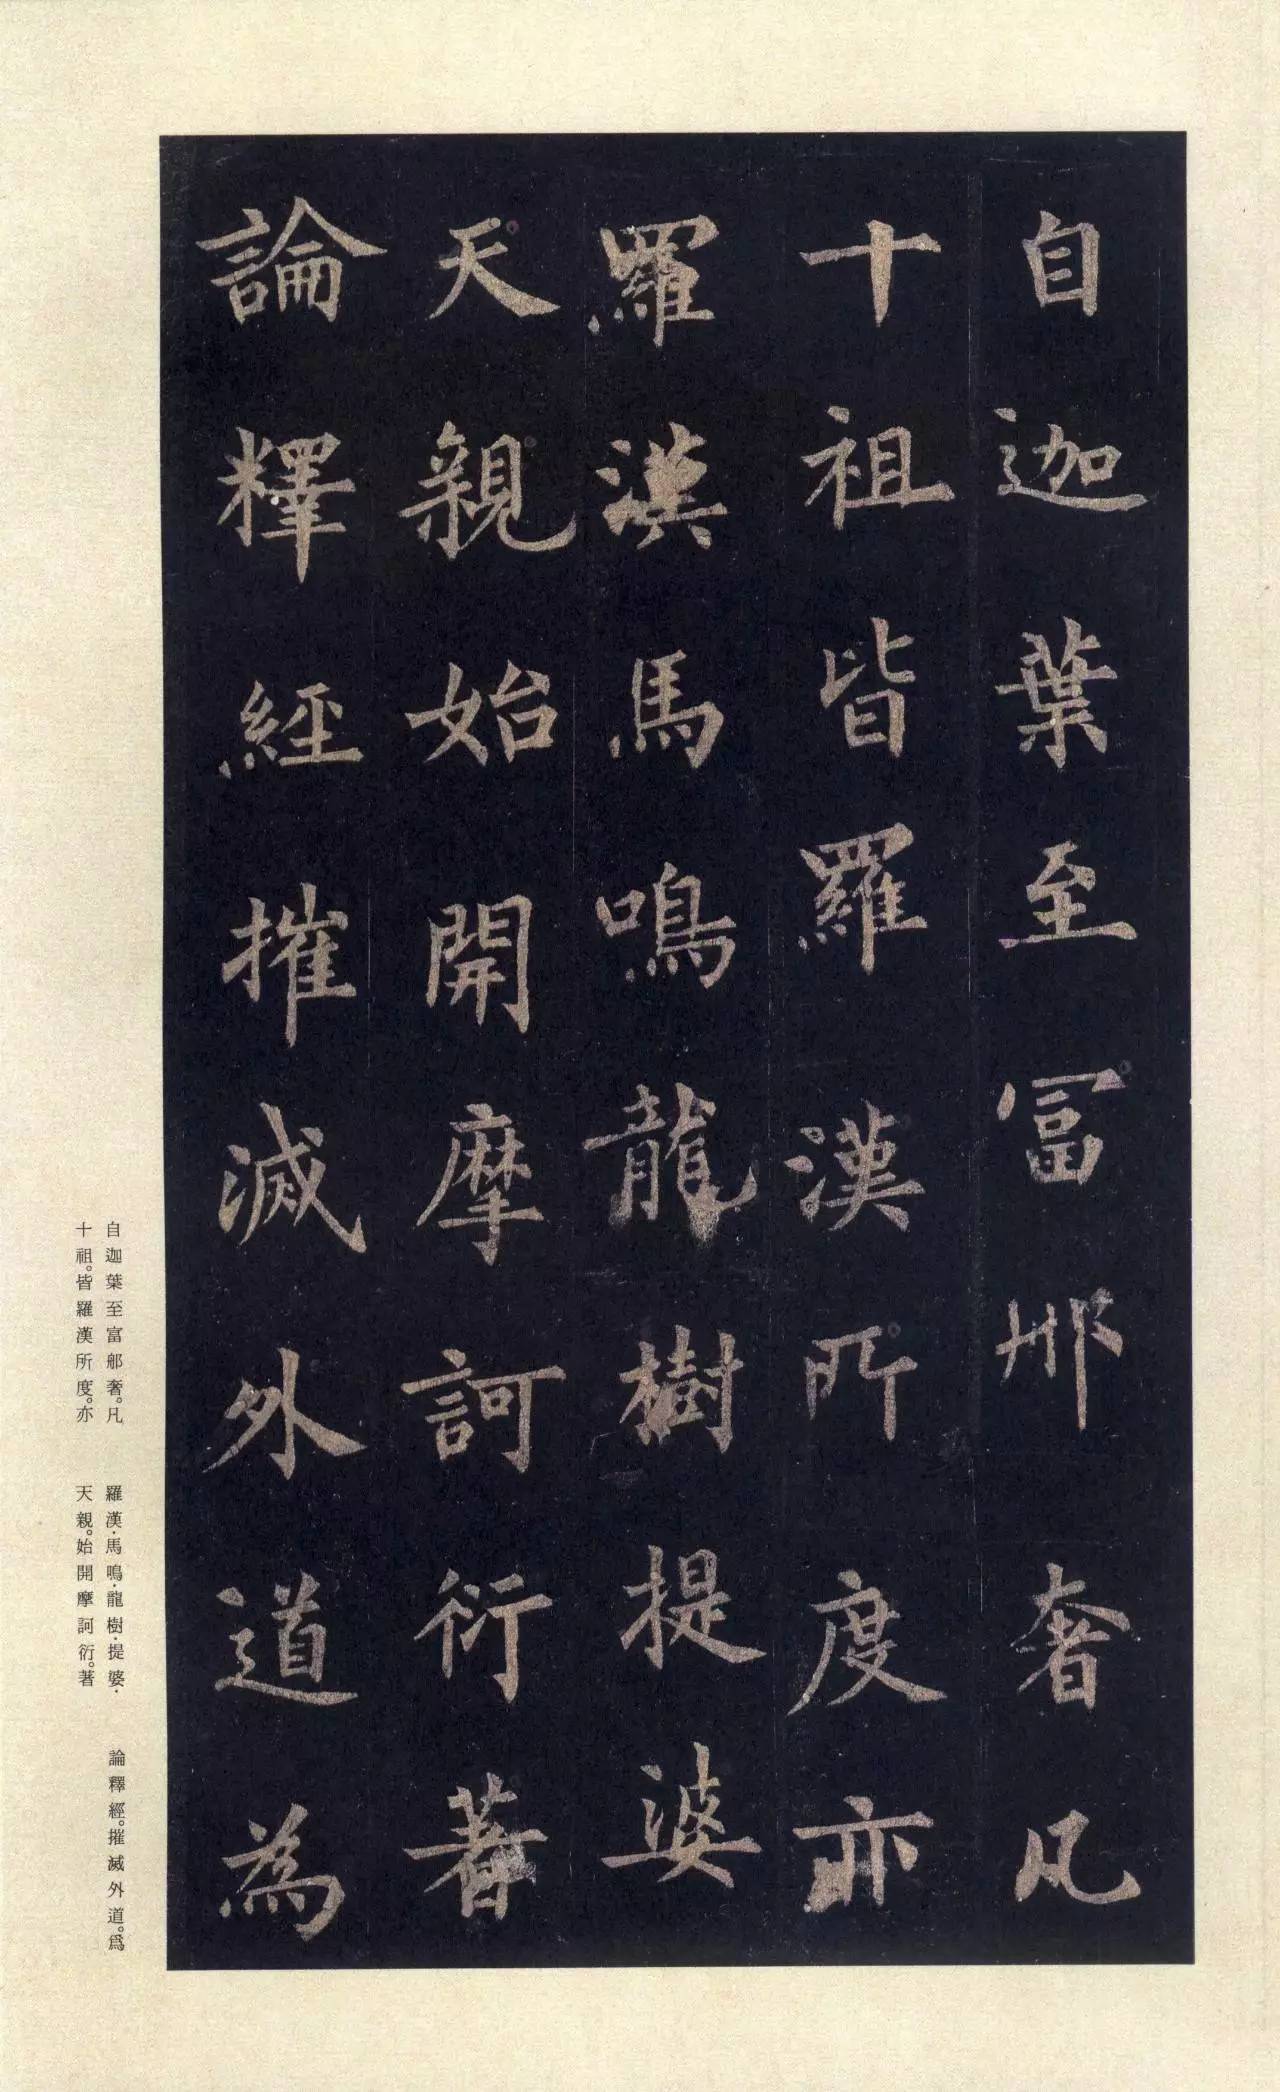 自迦葉至冨郍奢凡
十祖皆羅漢所度亦
羅漢馬鳴龍樹提婆
天親始開摩訶衍著
論釋經摧滅外道為
自迦葉至富郍奢。凡
十祖。皆羅漢所度。亦
羅漢·馬鳴·龍樹·提婆·
天親。始開摩訶衍。著
論釋經。摧滅外道。爲